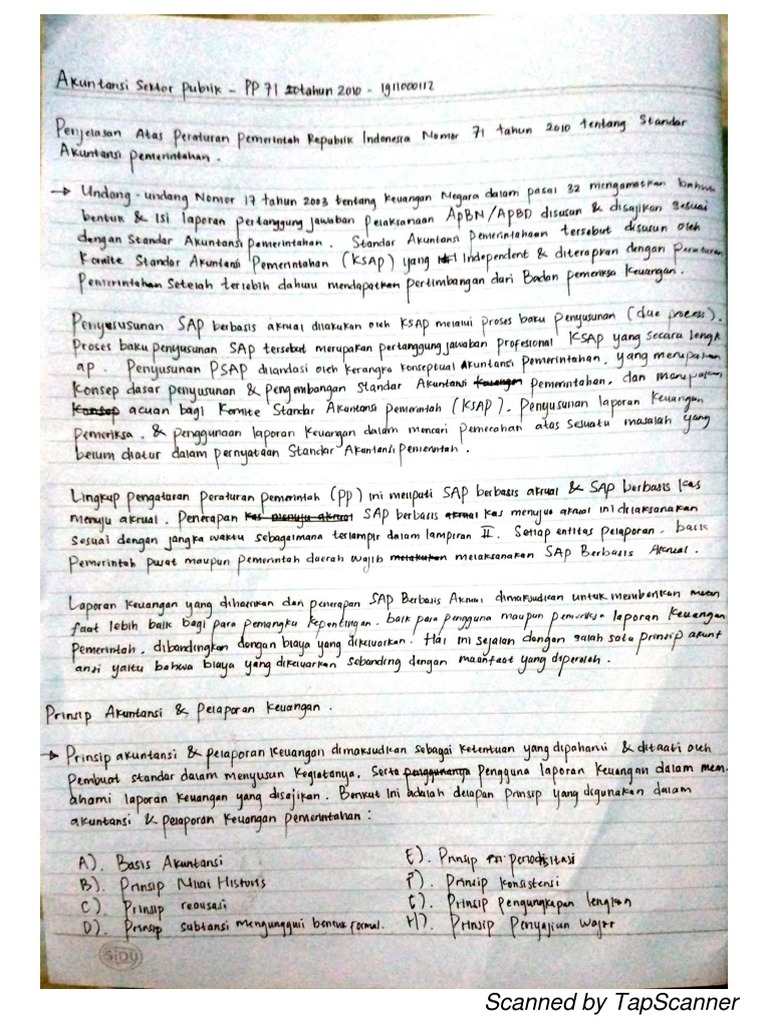 Akuntansi Sektor publik - PP 71 tahun 2010 - 1911000112
Penjelasan Atas Peraturan Pemerintah Republik Indonesia Nomor 71 tahun 2010 tentang Standar
Akuntansi pemerintahan.
→ Undang-undang Nomor 17 tahun 2003 tentang Keuangan Negara dalam pasal 32 mengamatkan bahwa
bentuk & Isi laporan pertanggung jawaban Pelaksanaan APBN/APBD disusun & disajikan Sesuai
dengan Standar Akuntansi pemerintahan. Standar Akuntansi Pemerintahaan tersebut disusun oleh
Komite Standar Akuntansi Pemerintahan (KSAP) yang Independent & diterapkan dengan Peraturan
Pemerintahan Setelah terlebih dahulu mendapatkan pertimbangan dari Badan pemeriksa Keuangan.
Penyususunan SAP berbasis akrual dilakukan oleh KSAP melalui proses baku penyusunan (due process).
Proses baku penyusunan SAP tersebut merupakan pertanggung jawaban profesional KSAP yang secara lengk
ap. Penyusunan PSAP dilandasi oleh kerangka konseptual Akuntansi Pemerintahan, yang merupakan
Konsep dasar penyusunan & pengembangan Standar Akuntansi pemerintahan, dan merupakan
acuan bagi Komite Standar Akuntansi Pemerintah (KSAP). Penyusunan laporan keuangan
pemeriksa, & penggunaan laporan Keuangan dalam mencari pemecahan atas sesuatu masalah yang
belum diatur dalam pernyataan Standar Akuntansi Pemerintah.
Lingkup pengaturan peraturan pemerintah (PP) ini meliputi SAP berbasis akrual & SAP berbasis Kas
menuju akrual. Penerapan SAP berbasis kas menyuju akrual ini dilaksanakan
sesuai dengan jangka waktu sebagaimana terlampir dalam lampiran II. Setiap entitas pelaporan, baik
Pemerintah pusat maupun pemerintah daerah wajib melaksanakan SAP Berbasis Akrual.
Laporan Keuangan yang dihasilkan dari penerapan SAP Berbasis Akrual dimaksudkan untuk memberikan man
faat lebih baik bagi para pemangku kepentingan, baik para pengguna maupun pemeriksa laporan keuangan
pemerintah, dibandingkan dengan biaya yang dikeluarkan. Hal ini sejalan dengan salah satu prinsip akunt
ansi yaitu bahwa biaya yang dikeluarkan sebanding dengan maanfaat yang diperoleh.
Prinsip Akuntansi & pelaporan keuangan.
→ Prinsip akuntansi & pelaporan keuangan dimaksudkan sebagai ketentuan yang dipahami & ditaati oleh
Pembuat standar dalam menyusun kegiatanya, Serta Pengguna laporan keuangan dalam mem
ahami laporan keuangan yang disajikan. Berikut Ini adalah delapan prinsip yang digunakan dalam
akuntansi & pelaporan keuangan pemerintahan:
A). Basis Akuntansi
B). Prinsip Nilai Historis
C). Prinsip realisasi
D). Prinsip subtansi mengungguli bentuk formal.
E). Prinsip periodisitasi
F). Prinsip konsistensi
G). Prinsip pengungkapan lengkap
H). Prinsip Penyajian Wajar
SIDU
Scanned by TapScanner